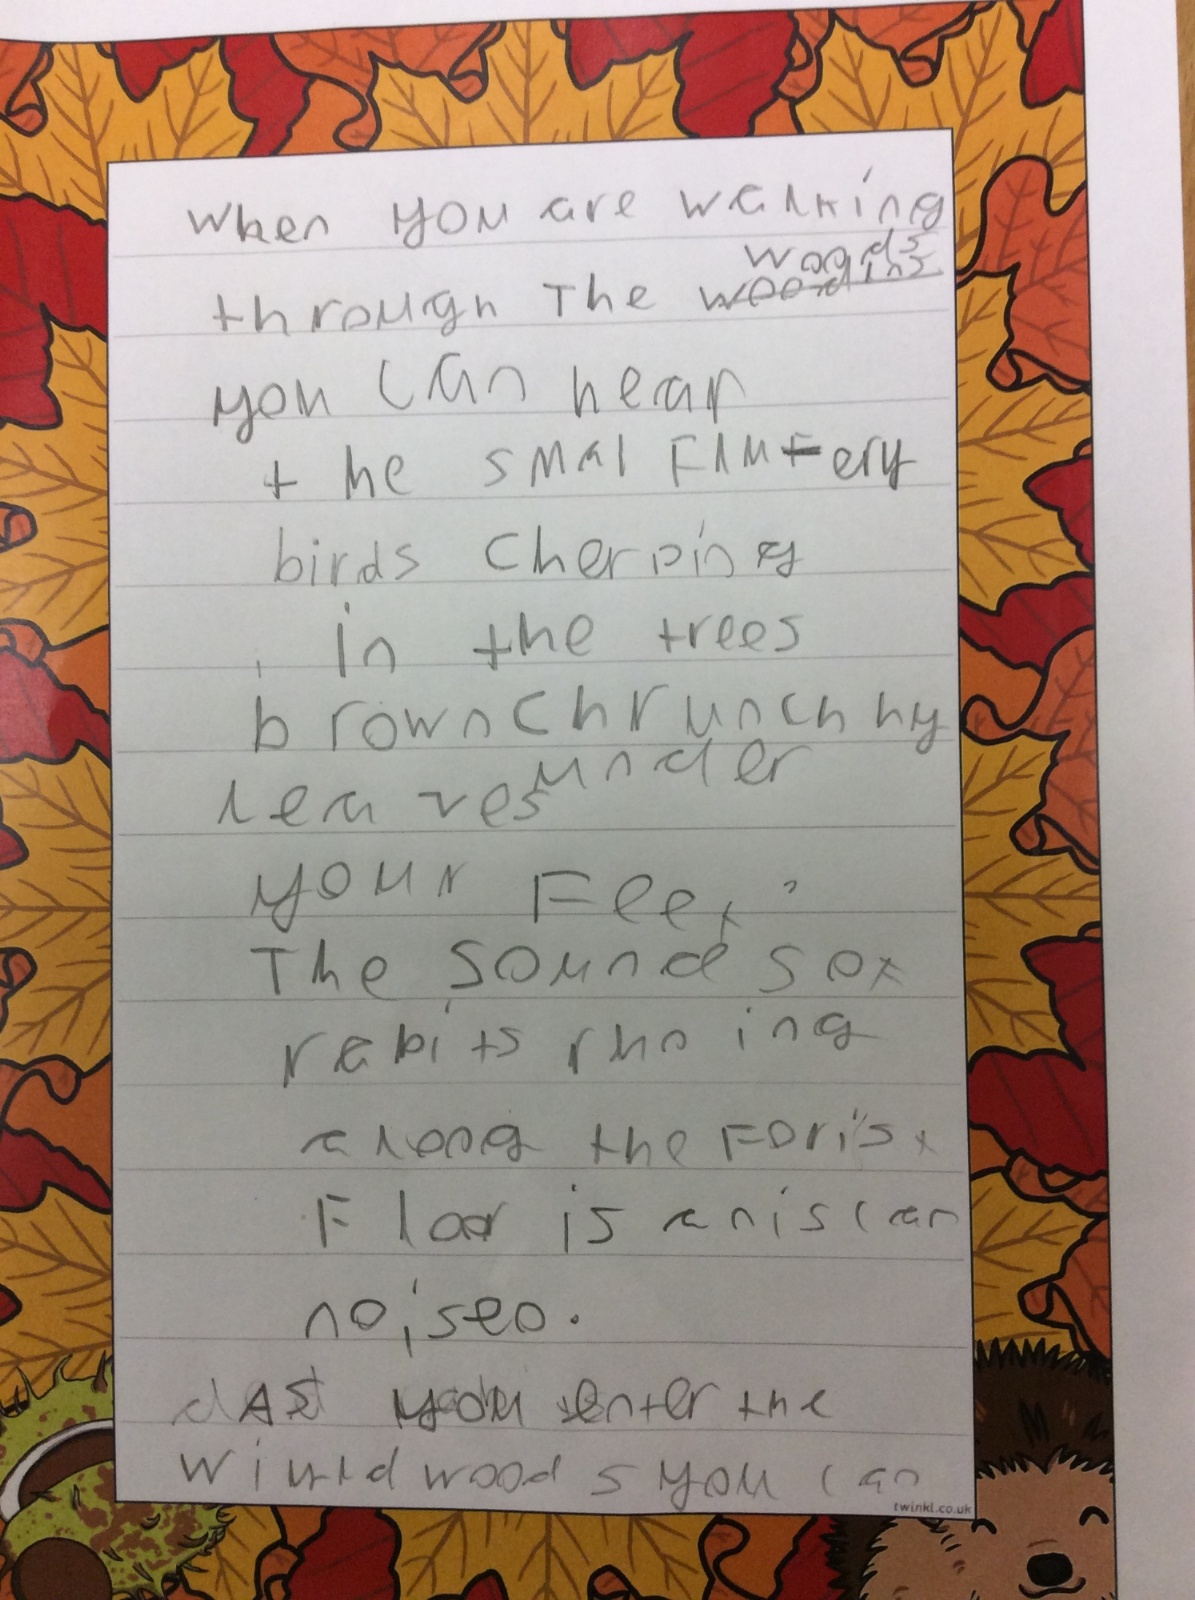 when you are walking
through The woods
you Can hear
the smal Fluttery
birds Cherping
in the trees
brown Chrunchhy
leaves under
your Feet
The Sounds of
rabits runing
along the Forist
Floor is an
noiseo.
As you enter the
wiurld woods you can
twinkl.co.uk